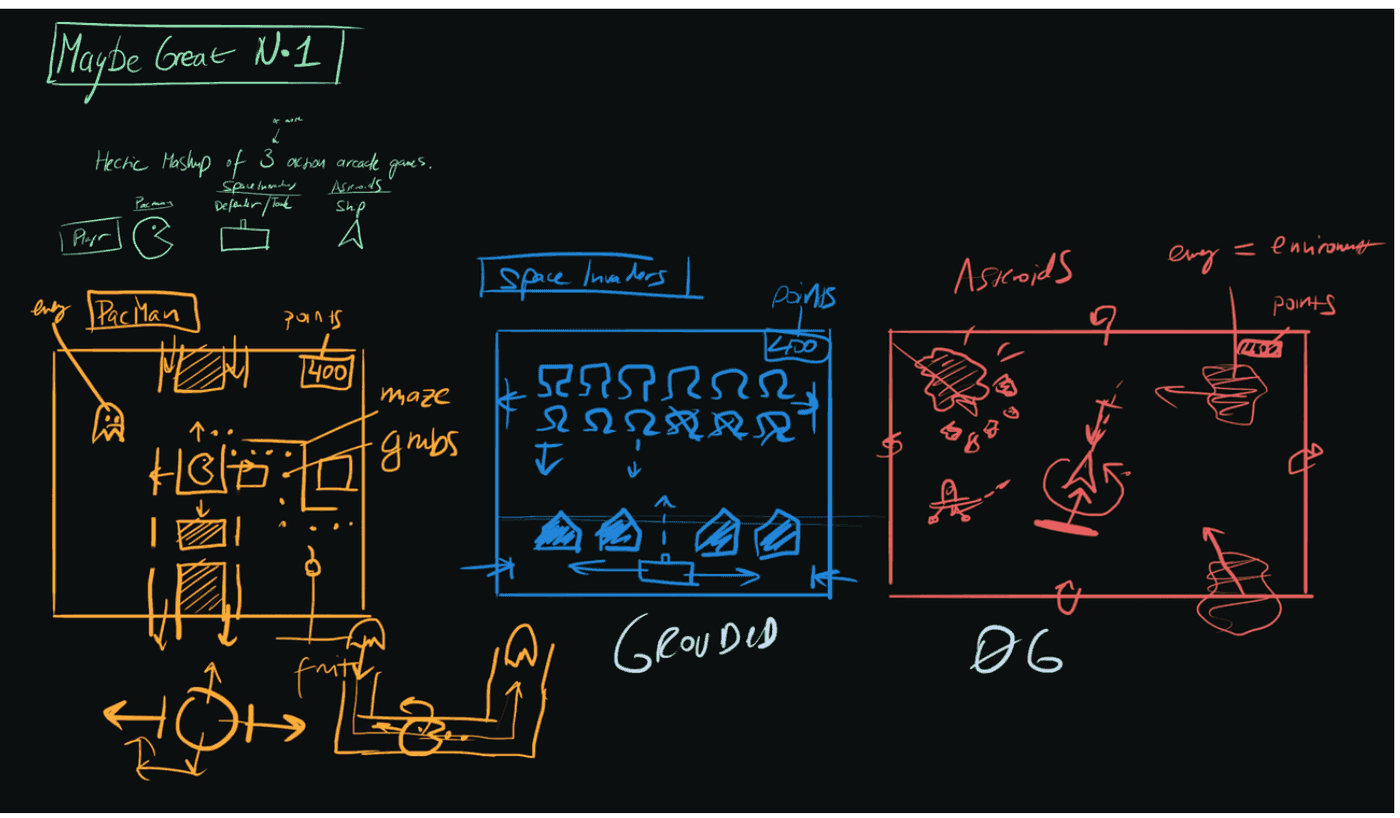 Maybe Great N.1
or more
Hectic Mashup of 3 action arcade games.
Pacman
Space Invaders
Defender/Tank
Asteroids
Ship
Player
PacMan
points
400
maze
grubs
fruit
Space Invaders
points
400
GROUDED
Asteroids
= enviroment
points
400
0G